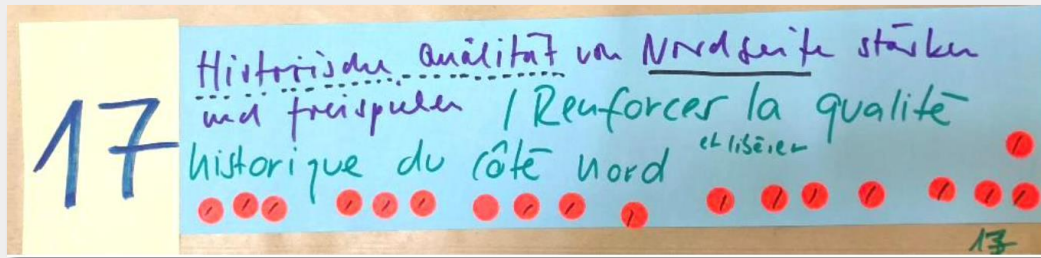 17
Historische Qualität von Nordseite stärken
und freispielen / Renforcer la qualité
historique du côté nord et libérer